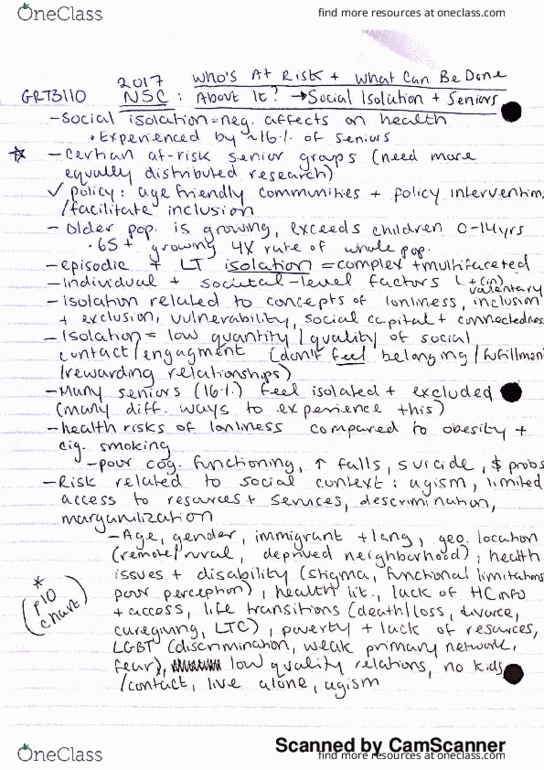 OneClass
find more resources at oneclass.com
GRT3110
2017 Who's At Risk + What Can Be Done
NSC: About It? → Social Isolation + Seniors
- Social isolation = neg. affects on health
• Experienced by ~16% of seniors
☆ - Certian at-risk senior groups (need more
equally distributed research)
✓ policy: age friendly communities + policy intervention
/facilitate inclusion
- Older pop. is growing, exceeds children 0-14yrs
• 65+ growing 4X rate of whole pop.
- episodic + LT isolation = complex + multifaceted
- Individual + societal-level factors ↳ + (in) voluntary
- Isolation related to concepts of lonliness, inclusion
+ exclusion, vulnerability, social capital + connectedness
- Isolation = low quantity/quality of social
contact/engagment (don't feel belonging/fulfillment
/rewarding relationships)
- Many seniors (16%) feel isolated + excluded
(many diff. ways to experience this)
- health risks of lonliness compared to obesity +
cig. smoking
- poor cog. functioning, ↑ falls, suicide, $ probs
- Risk related to social context: agism, limited
access to resources + services, descrimination,
marganilization
- Age, gender, immigrant + lang, geo. location
(remote/rural, deprived neighborhood), health
issues + disability (stigma, functional limitations
poor perception), health lit., lack of HC info
+ access, life transitions (death/loss, divorce,
caregiving, LTC), poverty + lack of resources,
LGBT (discrimination, weak primary network,
fear), low quality relations, no kids
/contact, live alone, agism
* (p10 chart)
Scanned by CamScanner
OneClass
find more resources at oneclass.com